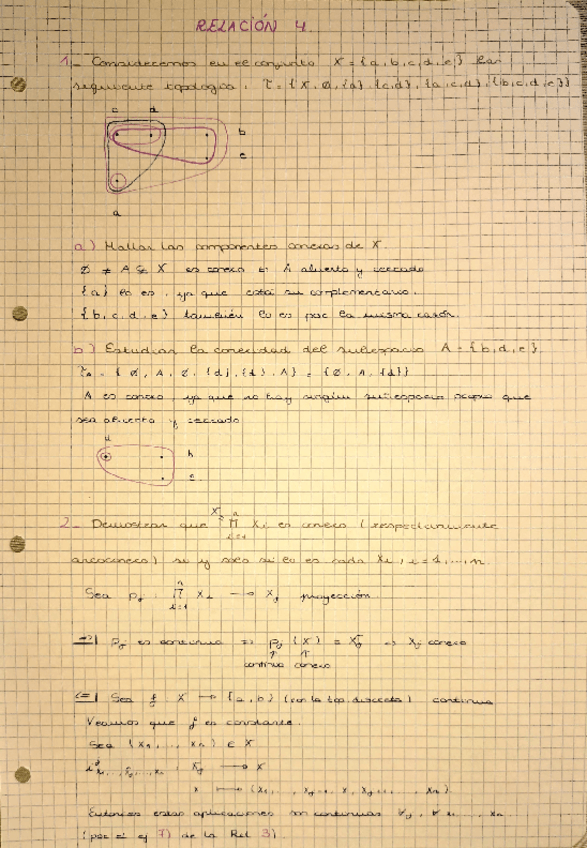 RELACIÓN 4
1_ Consideremos en el conjunto X = {a, b, c, d, e} la
siguiente topología. τ = {X, ∅, {a}, {c,d}, {a,c,d}, {b,c,d,e}}
c d
b
e
a
a) Hallar las componentes conexas de X
∅ ≠ A ⊊ X es conexo si A abierto y cerrado
{a} lo es, ya que está su complementario.
{b, c, d, e} también lo es por la misma razón.
b) Estudiar la conexidad del subespacio A = {b, d, e}
τ_A = {∅, A, ∅, {d}, {d}, A} = {∅, A, {d}}
A es conexo, ya que no hay ningún subespacio propio que
sea abierto y cerrado
d
b
e
2_ Demostrar que X = ∏ⁿᵢ₌₁ Xᵢ es conexo (respectivamente
arcoconexo) si y sólo si lo es cada Xᵢ, i = 1, ..., n.
Sea pⱼ : ∏ⁿᵢ₌₁ Xᵢ → Xⱼ proyección.
⇒| pⱼ es continua ⇒ pⱼ(X) = Xⱼ ⇒ Xⱼ conexo
continua conexo
⇐| Sea f : X → {a, b} (con la top. discreta) continua
Veamos que f es constante.
Sea (x₁, ..., xₙ) ∈ X
: Xⱼ → X
x ↦ (x₁, ..., xⱼ₋₁, x, xⱼ₊₁, ..., xₙ)
Entonces estas aplicaciones son continuas ∀j, ∀ x₁, ..., xₙ
(por el ej 7) de la Rel 3).